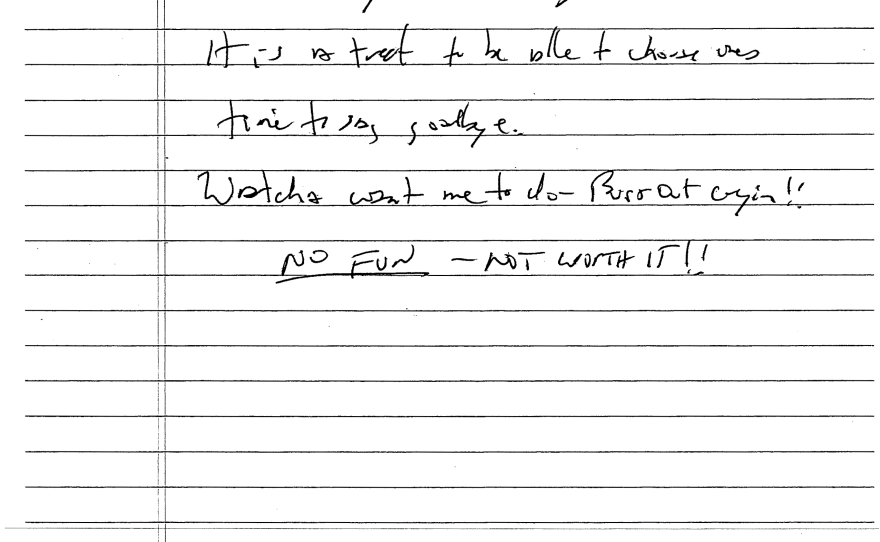 It is a treat to be able to choose ones
time to say goodbye.
Watcha want me to do – Burst out cryin!!
NO FUN – NOT WORTH IT!!